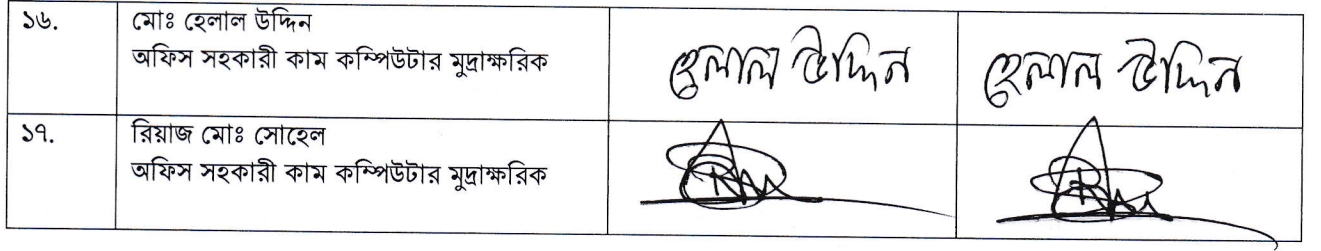 ১৬.
মোঃ হেলাল উদ্দিন
অফিস সহকারী কাম কম্পিউটার মুদ্রাক্ষরিক
হেলাল উদ্দিন
হেলাল উদ্দিন
১৭.
রিয়াজ মোঃ সোহেল
অফিস সহকারী কাম কম্পিউটার মুদ্রাক্ষরিক